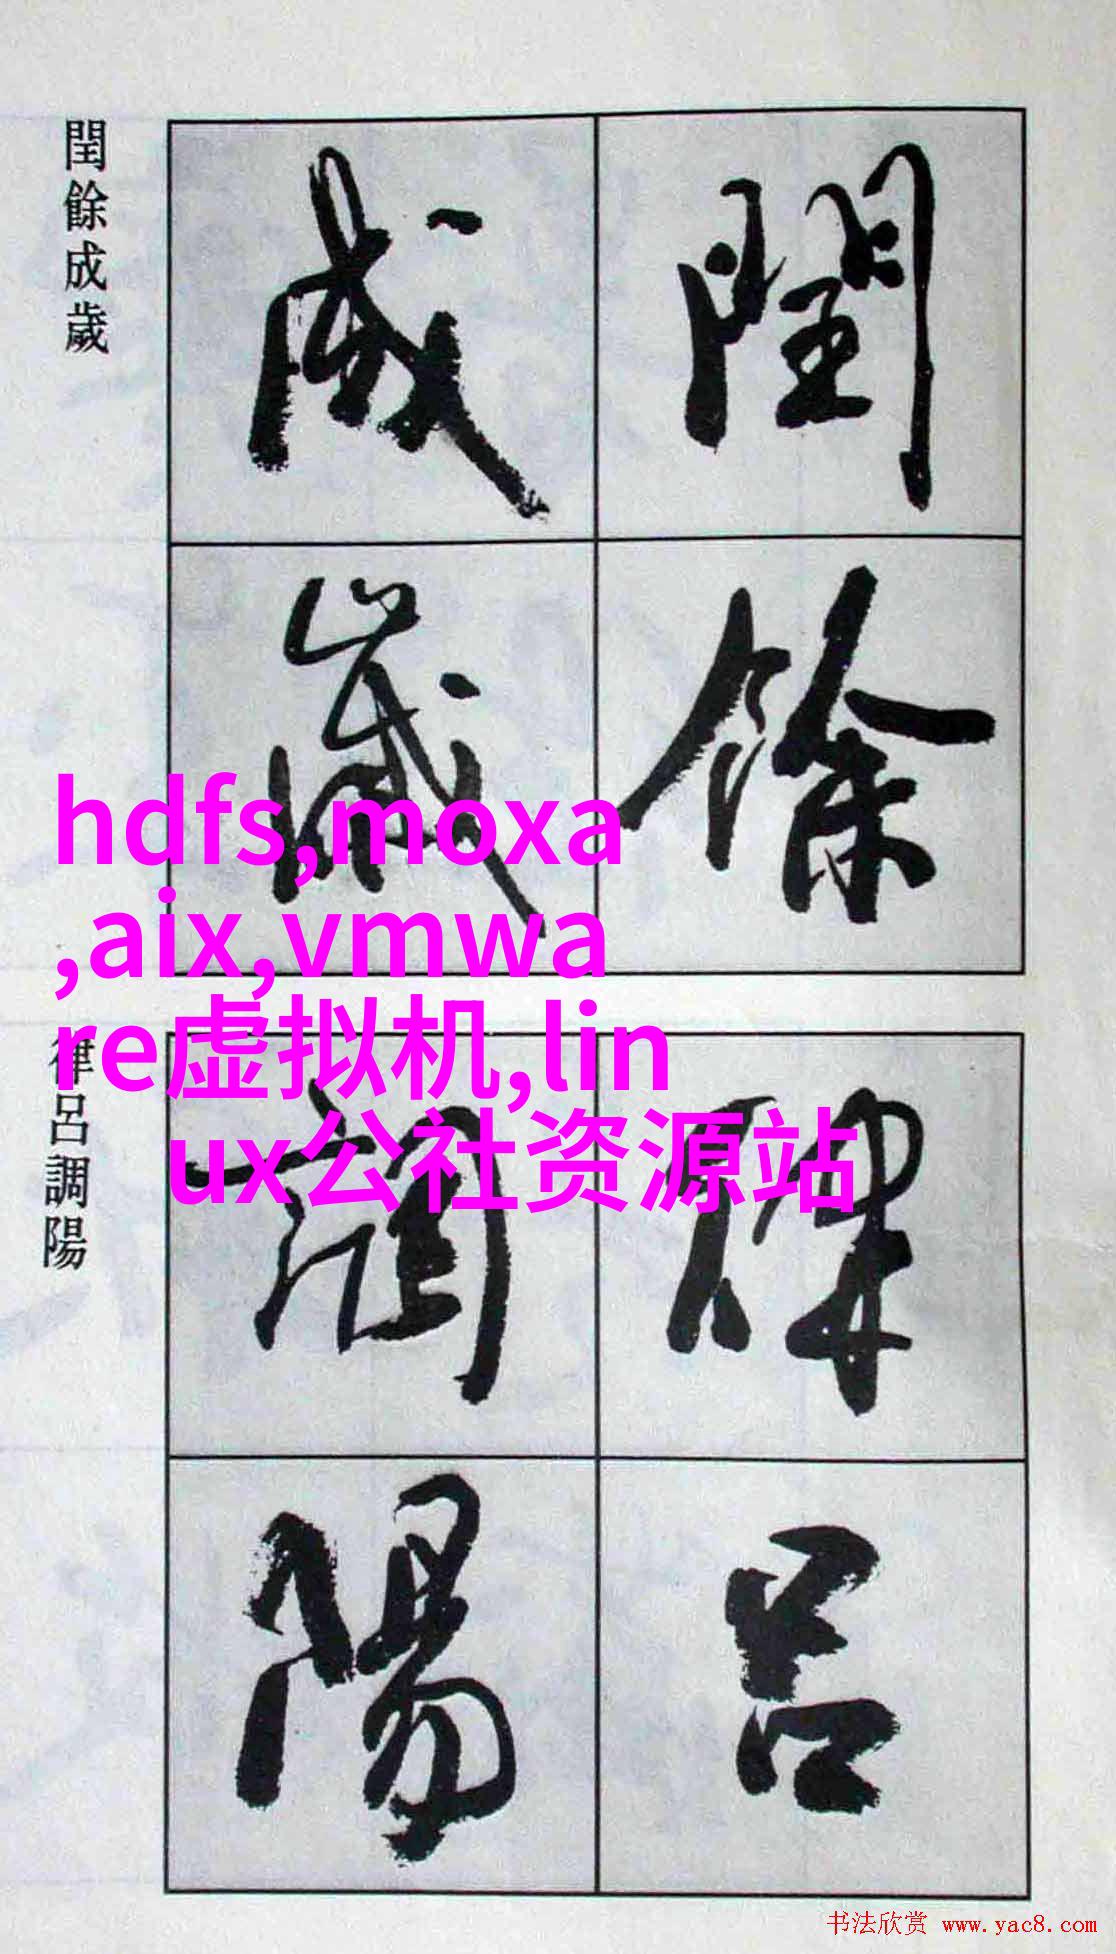 閏餘成歲
閏餘
成歲
hdfs,moxa
,aix,vmwa
re虚拟机,lin
ux公社资源站
律呂調陽
律呂
調陽
书法欣赏 www.yac8.com